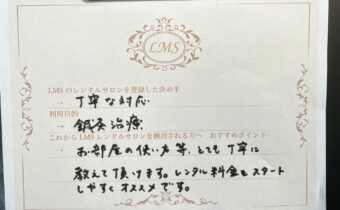 LMS
LMSのレンタルサロンを登録した決め手
→ 丁寧な対応
利用目的
→ 鍼灸治療
これからLMSレンタルサロンを検討される方へ おすすめポイント
→ お部屋の使い方等、とても丁寧に
教えて頂けます。レンタル料金もスタート
しやすくオススメです。